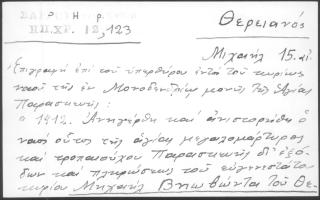 Θερειανός
ΠΠ.ΧΓ. 12,123
Μιχαήλ 15. αἰ.
Ἐπιγραφὴ ἐπὶ τοῦ ὑπερθύρου ἐντὸς τοῦ κυρίως
ναοῦ τῆς ἐν Μονοδενδρίῳ μονῆς τῆς Ἁγίας
Παρασκευῆς:
1412. Ἀνηγέρθη καὶ ἀνιστορήθη ὁ
ναὸς οὗτος τῆς ἁγίας μεγαλομάρτυρος
καὶ τροπαιούχου Παρασκευῆς δι' ἐξό-
δων καὶ πληρώσεως τοῦ εὐγενεστάτου
κυρίου Μιχαὴλ Βηωβώντα τοῦ Θε-